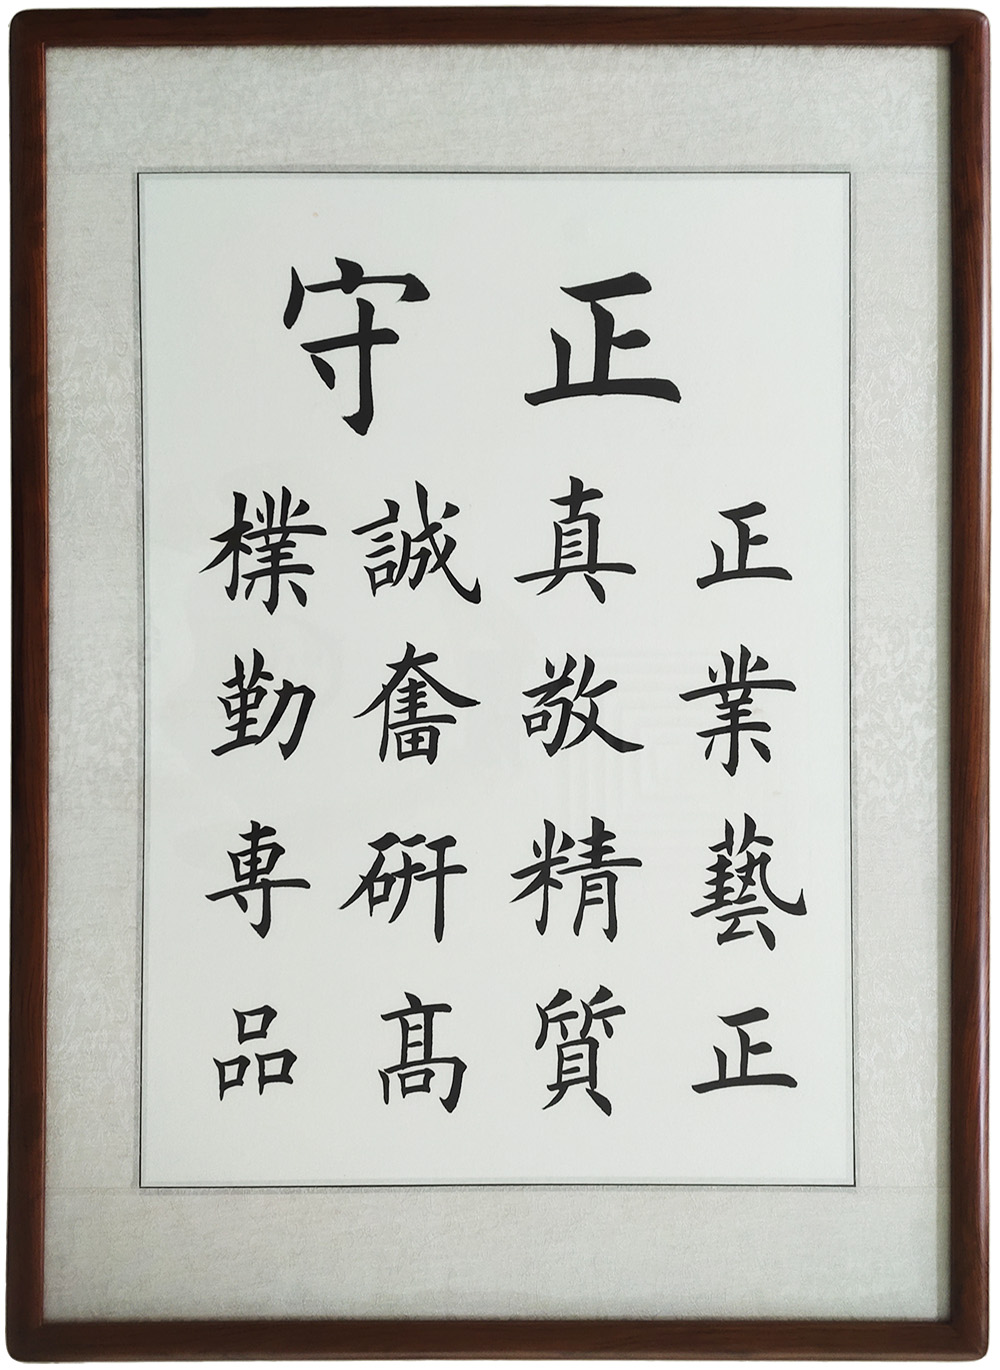 守正
樸誠真正
勤奮敬業
専硏精藝
品髙質正